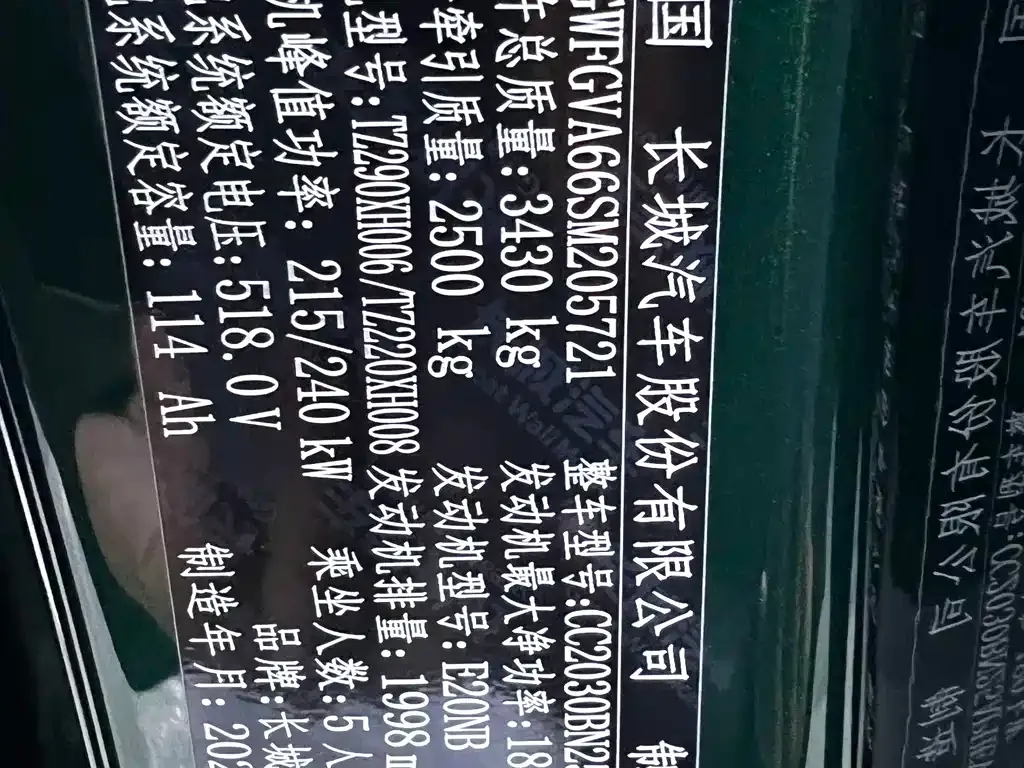 国 长城汽车股份有限公司 制
GWFGVA66SM205721 整车型号:CC2030BN25
总质量:3430 kg 发动机最大净功率:18
牵引质量:2500 kg 发动机型号:E20NB
型号:TZ290XH006/TZ220XH008 发动机排量:1998
机峰值功率:215/240 kW 乘坐人数:5人
系统额定电压:518.0V 品牌:长城
系统额定容量:114 Ah 制造年月:202